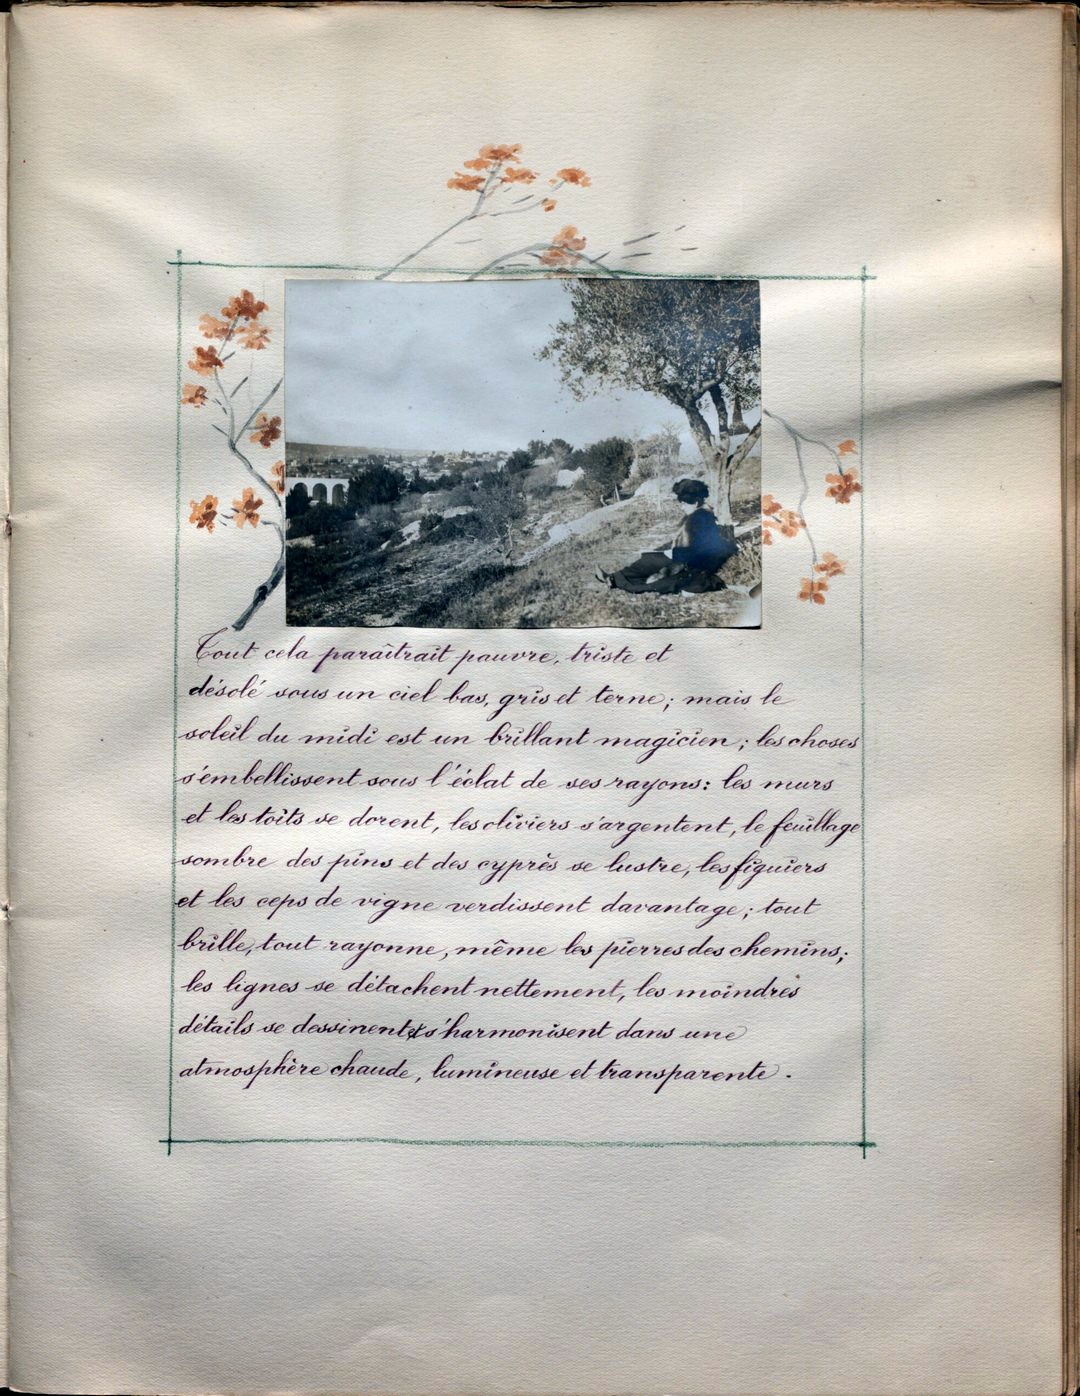 Tout cela paraîtrait pauvre, triste et
désolé sous un ciel bas, gris et terne; mais le
soleil du midi est un brillant magicien; les choses
s'embellissent sous l'éclat de ses rayons: les murs
et les toits se dorent, les oliviers s'argentent, le feuillage
sombre des pins et des cyprès se lustre, les figuiers
et les ceps de vigne verdissent davantage; tout
brille, tout rayonne, même les pierres des chemins;
les lignes se détachent nettement, les moindres
détails se dessinent & s'harmonisent dans une
atmosphère chaude, lumineuse et transparente.